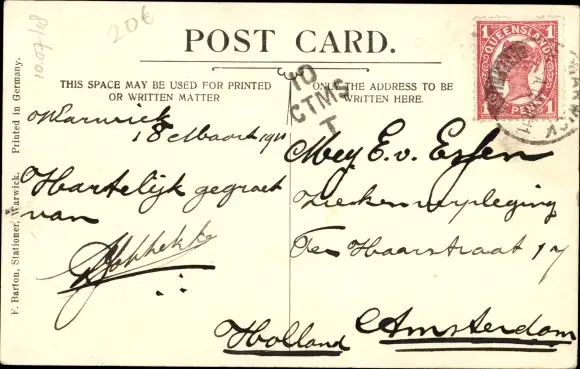 1007/18
20€
POST CARD.
THIS SPACE MAY BE USED FOR PRINTED
OR WRITTEN MATTER
ONLY THE ADDRESS TO BE
WRITTEN HERE.
10
CTMS
T
1 QUEENSLAND 1
ONE PENNY
WARWICK
Warwick
18 Maart 1911
Hartelijk gegroet
van
Mej E. v. Essen
Ziekenverpleging
Ter Haarstraat 17
Amsterdam
Holland
Printed in Germany.
F. Barton, Stationer, Warwick.